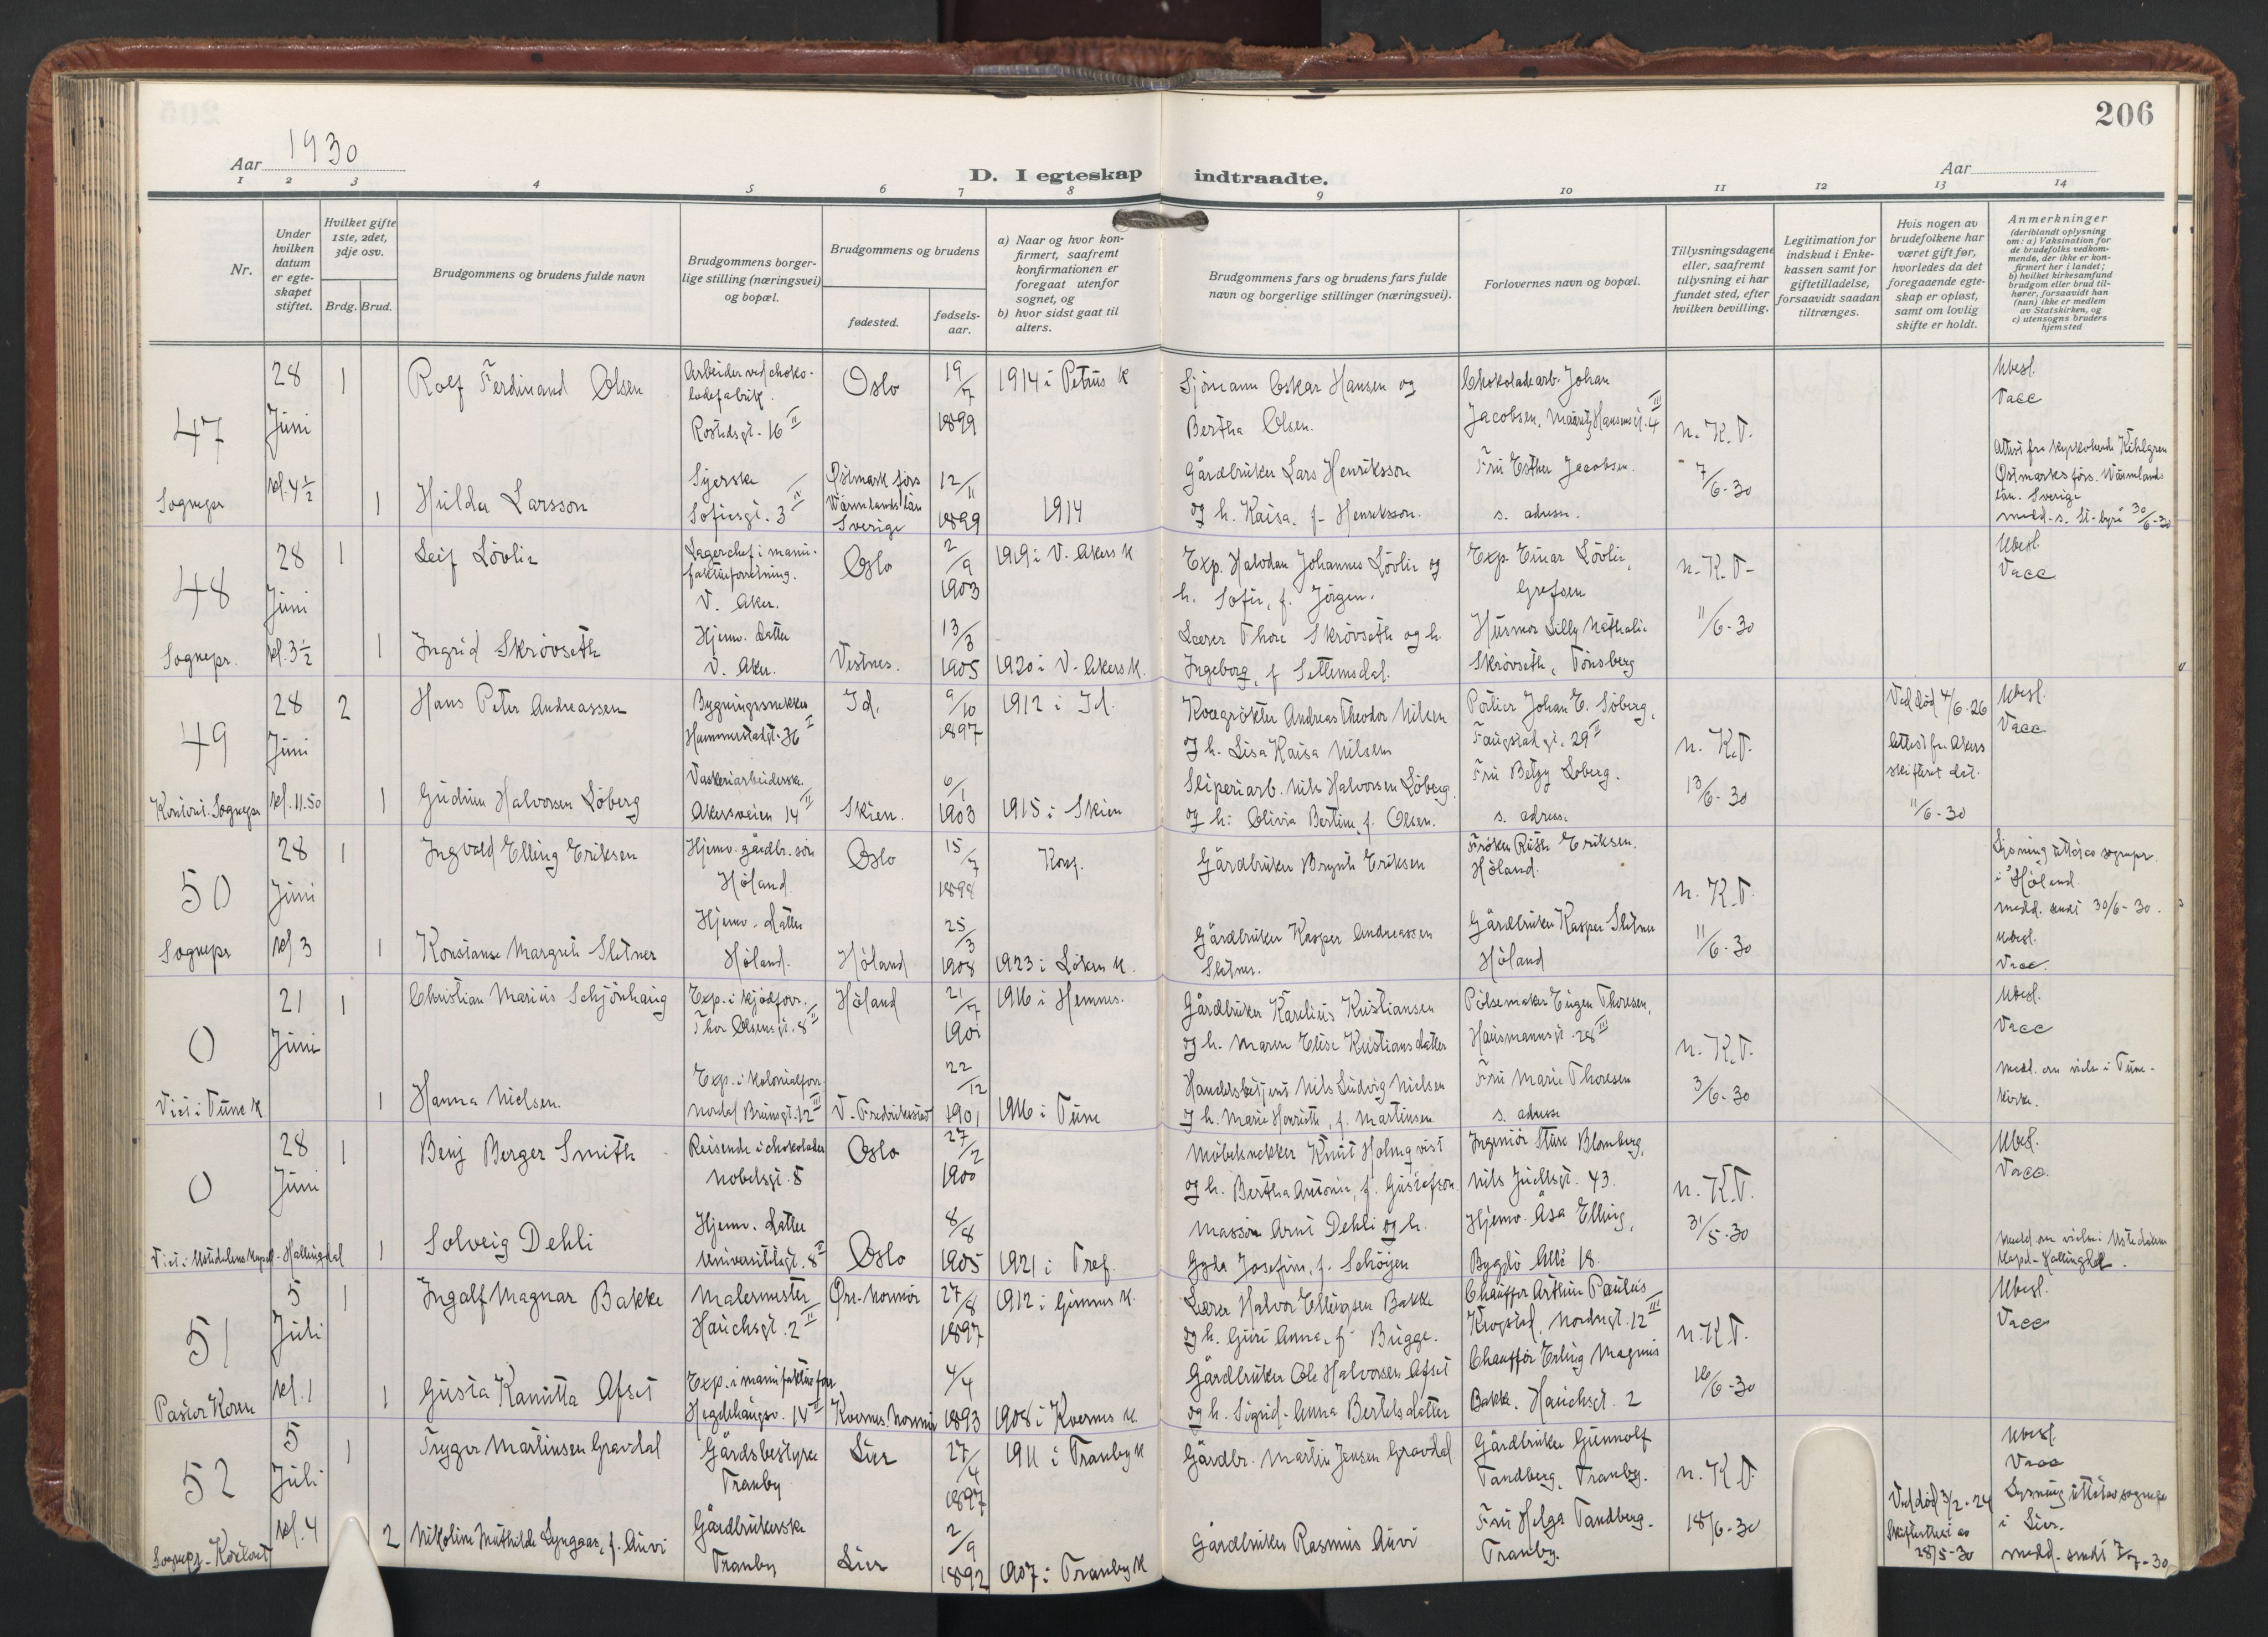 206
Aar 1930
D. I egteskap indtraadte.
Aar
1 2 3 4 5 6 7 8 9 10 11 12 13 14
Nr.
Under hvilken datum er egteskapet stiftet.
Hvilket gifte 1ste, 2det, 3dje osv.
Brdg. Brud.
Brudgommens og brudens fulde navn
Brudgommens borgerlige stilling (næringsvei) og bopæl.
Brudgommens og brudens
fødested.
fødselsaar.
a) Naar og hvor konfirmert, saafremt konfirmationen er foregaat utenfor sognet, og
b) hvor sidst gaat til alters.
Brudgommens fars og brudens fars fulde navn og borgerlige stillinger (næringsvei).
Forlovernes navn og bopæl.
Tillysningsdagene eller, saafremt tillysning ei har fundet sted, efter hvilken bevilling.
Legitimation for indskud i Enkekassen samt for giftetilladelse, forsaavidt saadan tiltrænges.
Hvis nogen av brudefolkene har været gift før, hvorledes da det foregaaende egteskap er opløst, samt om lovlig skifte er holdt.
Anmerkninger (deriblandt oplysning om: a) Vaksination for de brudefolks vedkommende, der ikke er konfirmert her i landet; b) hvilket kirkesamfund brudgom eller brud tilhører, forsaavidt han (hun) ikke er medlem av Statskirken, og c) utensogns bruders hjemsted
47 28 Juni kl. 4 1/2 Sognepr
1 Rolf Ferdinand Olsen Arbeider ved chokoladefabrik. Rostedsgt. 16 II Oslo 19/7 1899 1914 i Petrus K Sjömann Oskar Hansen og Bertha Olsen. Chokoladearb. Johan Jacobsen, Mauritz Hansensgt. 4 III n. K. T. Ubesl. Vacc
1 Hulda Larsson Syerske Sofiesgt. 3 II Östmark förs Wärmlands län Sverige 12/11 1899 1914 Gårdbruker Lars Henriksson og h. Kaisa. f. Henriksson. Fru Esther Jacobsen. s. adresse. 7/6-30 Östmarks förs. Wärmlands län. Sverige 30/6-30
48 28 Juni kl. 3 1/2 Sognepr.
1 Leif Lövlie Lagerchef i manufakturforretning. V. Aker. Oslo 2/9 1903 1919 i V. Akers K Exp. Halvdan Johannes Lövlie og h. Sofie, f. Jörgen. Exp. Einar Lövlie, Grefsen n. K. T. Ubesl. Vacc
1 Ingrid Skrövseth Hjemv. datter V. Aker. Vestnes. 13/3 1905 1920 i V. Akers K. Lærer Thore Skrövseth og h. Ingeborg, f. Settemsdal. Husmor Lilly Nathalie Skrövseth, Tönsberg 11/6-30
49 28 Juni kl. 11.50 Sognepr
2 Hans Peter Andreassen Bygningssnekker Hammerstadgt. 36 I Id. 9/10 1897 1912 i Id. Andreas Theodor Nilsen og h. Lisa Kaisa Nilsen Portier Johan E. Löberg, 29 II n. K. T. Ved död 4/6-26 Attest fra Akers skifteret dat. 11/6-30 Ubesl. Vacc
1 Gudrun Halvorsen Löberg Vaskeriarbeiderske. Akersveien 14 II Skien. 6/1 1903 1915 i Skien Sliperiarb. Nils Halvorsen Löberg og h. Olivia Bertine, f. Olsen. Fru Betzy Löberg. s. adresse 13/6-30
50 28 Juni kl. 3 Sognepr
1 Ingvald Elling Eriksen Hjemv. gårdbr. sön Höland. Oslo 15/7 1898 Konf. Gårdbruker Brynte Eriksen Fröken Ruth Eriksen. Höland. n. K. T. Lysning utföres sognepr. i Höland. medd. sendt 30/6-30. Ubesl. Vacc.
1 Konstanse Margrete Sletner Hjemv. datter Höland. Höland 25/3 1908 1923 i Löken K. Gårdbruker Kasper Andreassen Sletner. Gårdbruker Kasper Sletner Höland 11/6-30
0 21 Juni Viet i Tune K
1 Christian Marius Schjönhaug Exp. i kjödforr. Thor Olsensgt. 8 II Höland 21/7 1901 1916 i Hemnes. Gårdbruker Karelius Kristiansen og h. Maren Elise Kristiansdatter Pölsemaker Eugen Thoresen, Hausmannsgt. 28 III n. K. T. Ubesl. Vacc
1 Hanna Nielsen. Exp. i kolonialforr. Nordal Brunsgt. 12 III V. Fredrikstad 22/12 1901 1916 i Tune Handelsbetjent Nils Ludvig Nielsen og h. Marie Henriette, f. Martinsen Fru Marie Thoresen s. adresse 3/6-30 medd. om vielse i Tune kirke.
0 28 Juni Viet i Ustedalens kapel - Hallingdal
1 Benj Berger Smith Reisende i chokolader Nobelsgt. 5 Oslo 27/2 1900 Möbelsnekker Knut Holmqvist og h. Bertha Antonie, f. Gustafson. Ingeniör Sture Blomberg, Nils Juelsgt. 43. n. K. T. Ubesl. Vacc.
1 Solveig Dehli Hjemv. datter Universitetsgt. 8 II Oslo 8/8 1905 1921 i Tref. Massör Arnt Dehli og h. Gyda Josefine, f. Schöyen Hjemv. Åsa Elling, Bygdö Allé 18. 31/5-30 medd. om vielse i Ustedalen kapel - Hallingdal.
51 5 Juli kl. 1 Pastor Koren
1 Ingolf Magnar Bakke Malermester Hauchsgt. 2 II Öre. Nordmör 27/8 1897 1912 i Gimnes K. Lærer Halvor Ellingsen Bakke og h. Guri Anna, f. Bugge. Chaufför Arthur Paulus Krogstad, Nordregt. 12 III n. K. T. Ubesl. Vacc
1 Gusta Kamitta Ofset Exp. i manufakturforr Hegdehaugsv. 14 II Kvernes Nordmör 4/4 1893 1908 i Kvernes K. Gårdbruker Ole Halvorsen Ofset og h. Sigrid Anna Bertelsdatter Chaufför Erling Magnus Bakke. Hauchsgt. 2 16/6-30
52 5 Juli kl. 4 Sognepr.
1 Trygve Martinsen Gravdal Gårdsbestyrer Tranby Lier 27/4 1897 1911 i Tranby K Gårdbr. Martin Jensen Gravdal Gårdbruker Gunnolf Tandberg, Tranby. n. K. T. Ubesl. Vacc
2 Nikoline Mathilde Lyngaas, f. Auvi Gårdbrukerske Tranby Lier 2/9 1892 1907 i Tranby K Gårdbruker Rasmus Auvi Fru Helga Tandberg. Tranby. 18/6-30 Ved död 3/2-24 Skifteattest av 28/5-30 Lysning utföres sognepr i Lier. medd. sendt 7/7-30